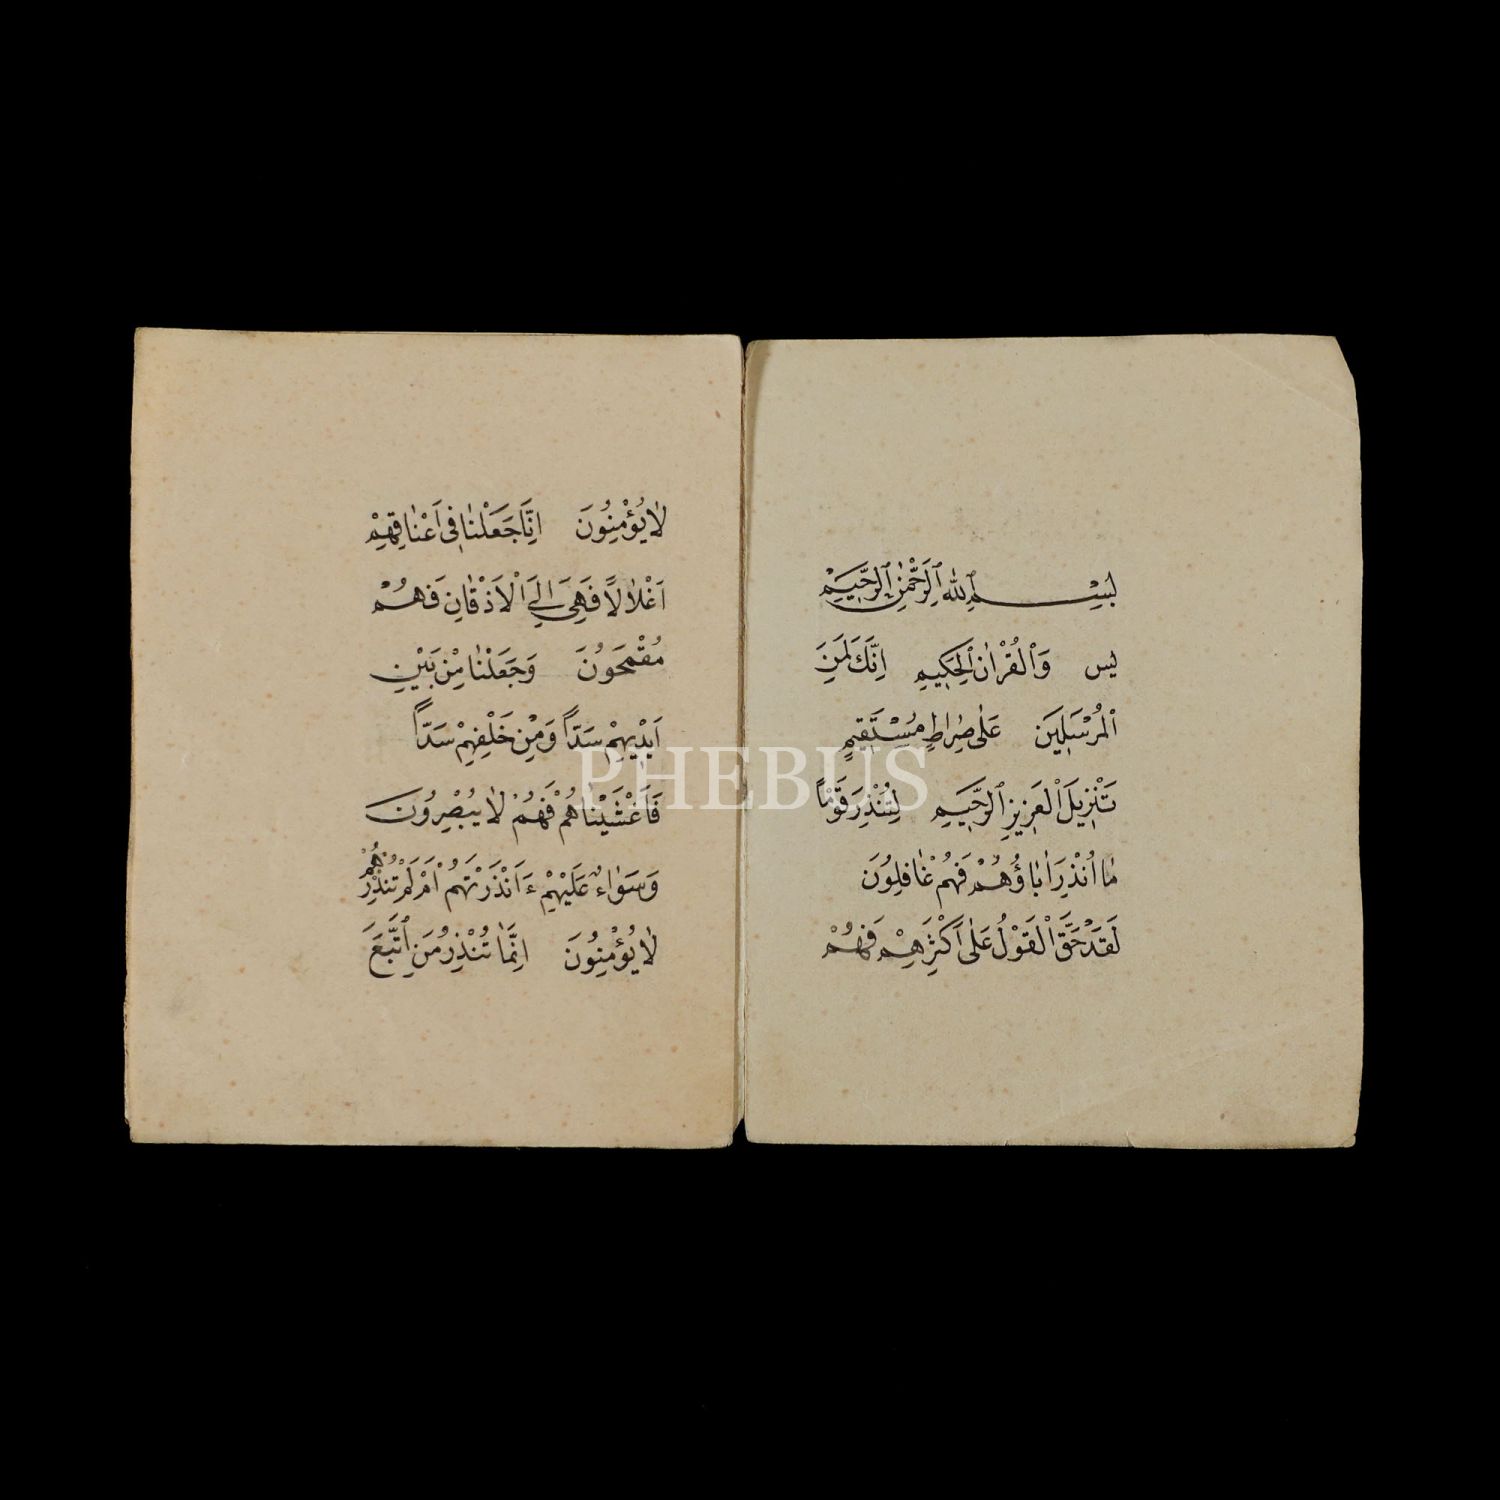 بِسْمِ ٱللّٰهِ ٱلرَّحْمٰنِ ٱلرَّحِيمِ
يٰس وَٱلْقُرْاٰنِ ٱلْحَكِيمِ اِنَّكَ لَمِنَ
ٱلْمُرْسَلِينَ عَلٰى صِرَاطٍ مُسْتَقِيمٍ
تَنْزِيلَ ٱلْعَزِيزِ ٱلرَّحِيمِ لِتُنْذِرَ قَوْمًا
مٰا اُنْذِرَ اٰبٰاؤُهُمْ فَهُمْ غٰافِلُونَ
لَقَدْ حَقَّ ٱلْقَوْلُ عَلٰى اَكْثَرِهِمْ فَهُمْ
لٰا يُؤْمِنُونَ اِنَّا جَعَلْنٰا فِى اَعْنٰاقِهِمْ
اَغْلٰالًا فَهِىَ اِلَى ٱلْاَذْقٰانِ فَهُمْ
مُقْمَحُونَ وَجَعَلْنٰا مِنْ بَيْنِ
اَيْدِيهِمْ سَدًّا وَمِنْ خَلْفِهِمْ سَدًّا
فَاَغْشَيْنٰاهُمْ فَهُمْ لٰا يُبْصِرُونَ
وَسَوٰاءٌ عَلَيْهِمْ ءَاَنْذَرْتَهُمْ اَمْ لَمْ تُنْذِرْهُمْ
لٰا يُؤْمِنُونَ اِنَّمٰا تُنْذِرُ مَنِ ٱتَّبَعَ
PHEBUS